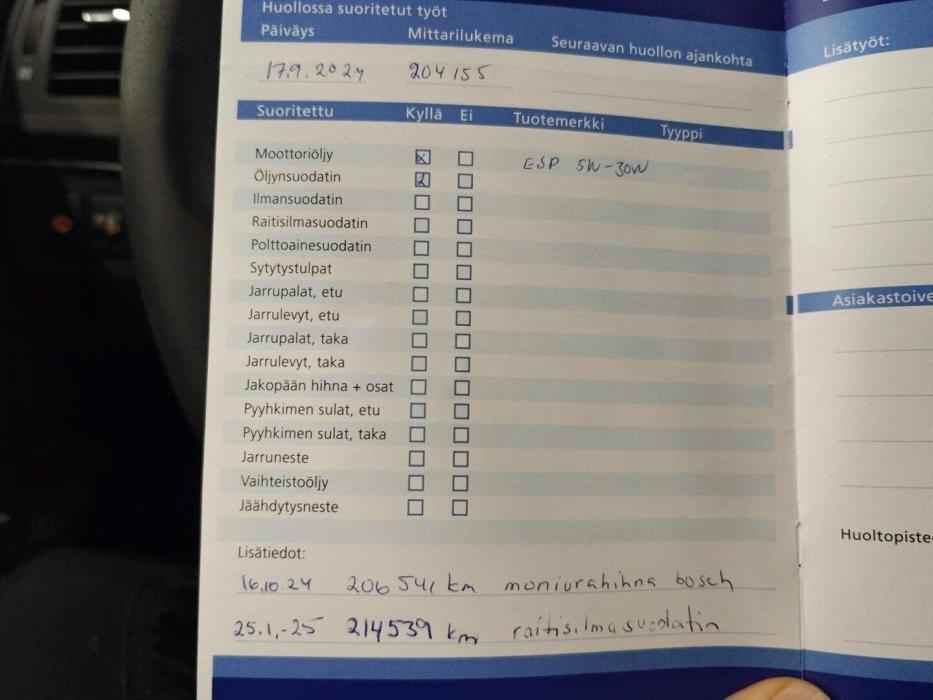 Huollossa suoritetut työt
Päiväys Mittarilukema Seuraavan huollon ajankohta
17.9.2024 204155
Suoritettu Kyllä Ei Tuotemerkki Tyyppi
Moottoriöljy x ESP 5W-30W
Öljynsuodatin x
Ilmansuodatin
Raitisilmasuodatin
Polttoainesuodatin
Sytytystulpat
Jarrupalat, etu
Jarrulevyt, etu
Jarrupalat, taka
Jarrulevyt, taka
Jakopään hihna + osat
Pyyhkimen sulat, etu
Pyyhkimen sulat, taka
Jarruneste
Vaihteistoöljy
Jäähdytysneste
Lisätiedot:
16.10.24 206 541 km moniurahihna bosch
25.1.-25 214539 km raitisilmasuodatin
Lisätyöt:
Asiakastoive
Huoltopiste